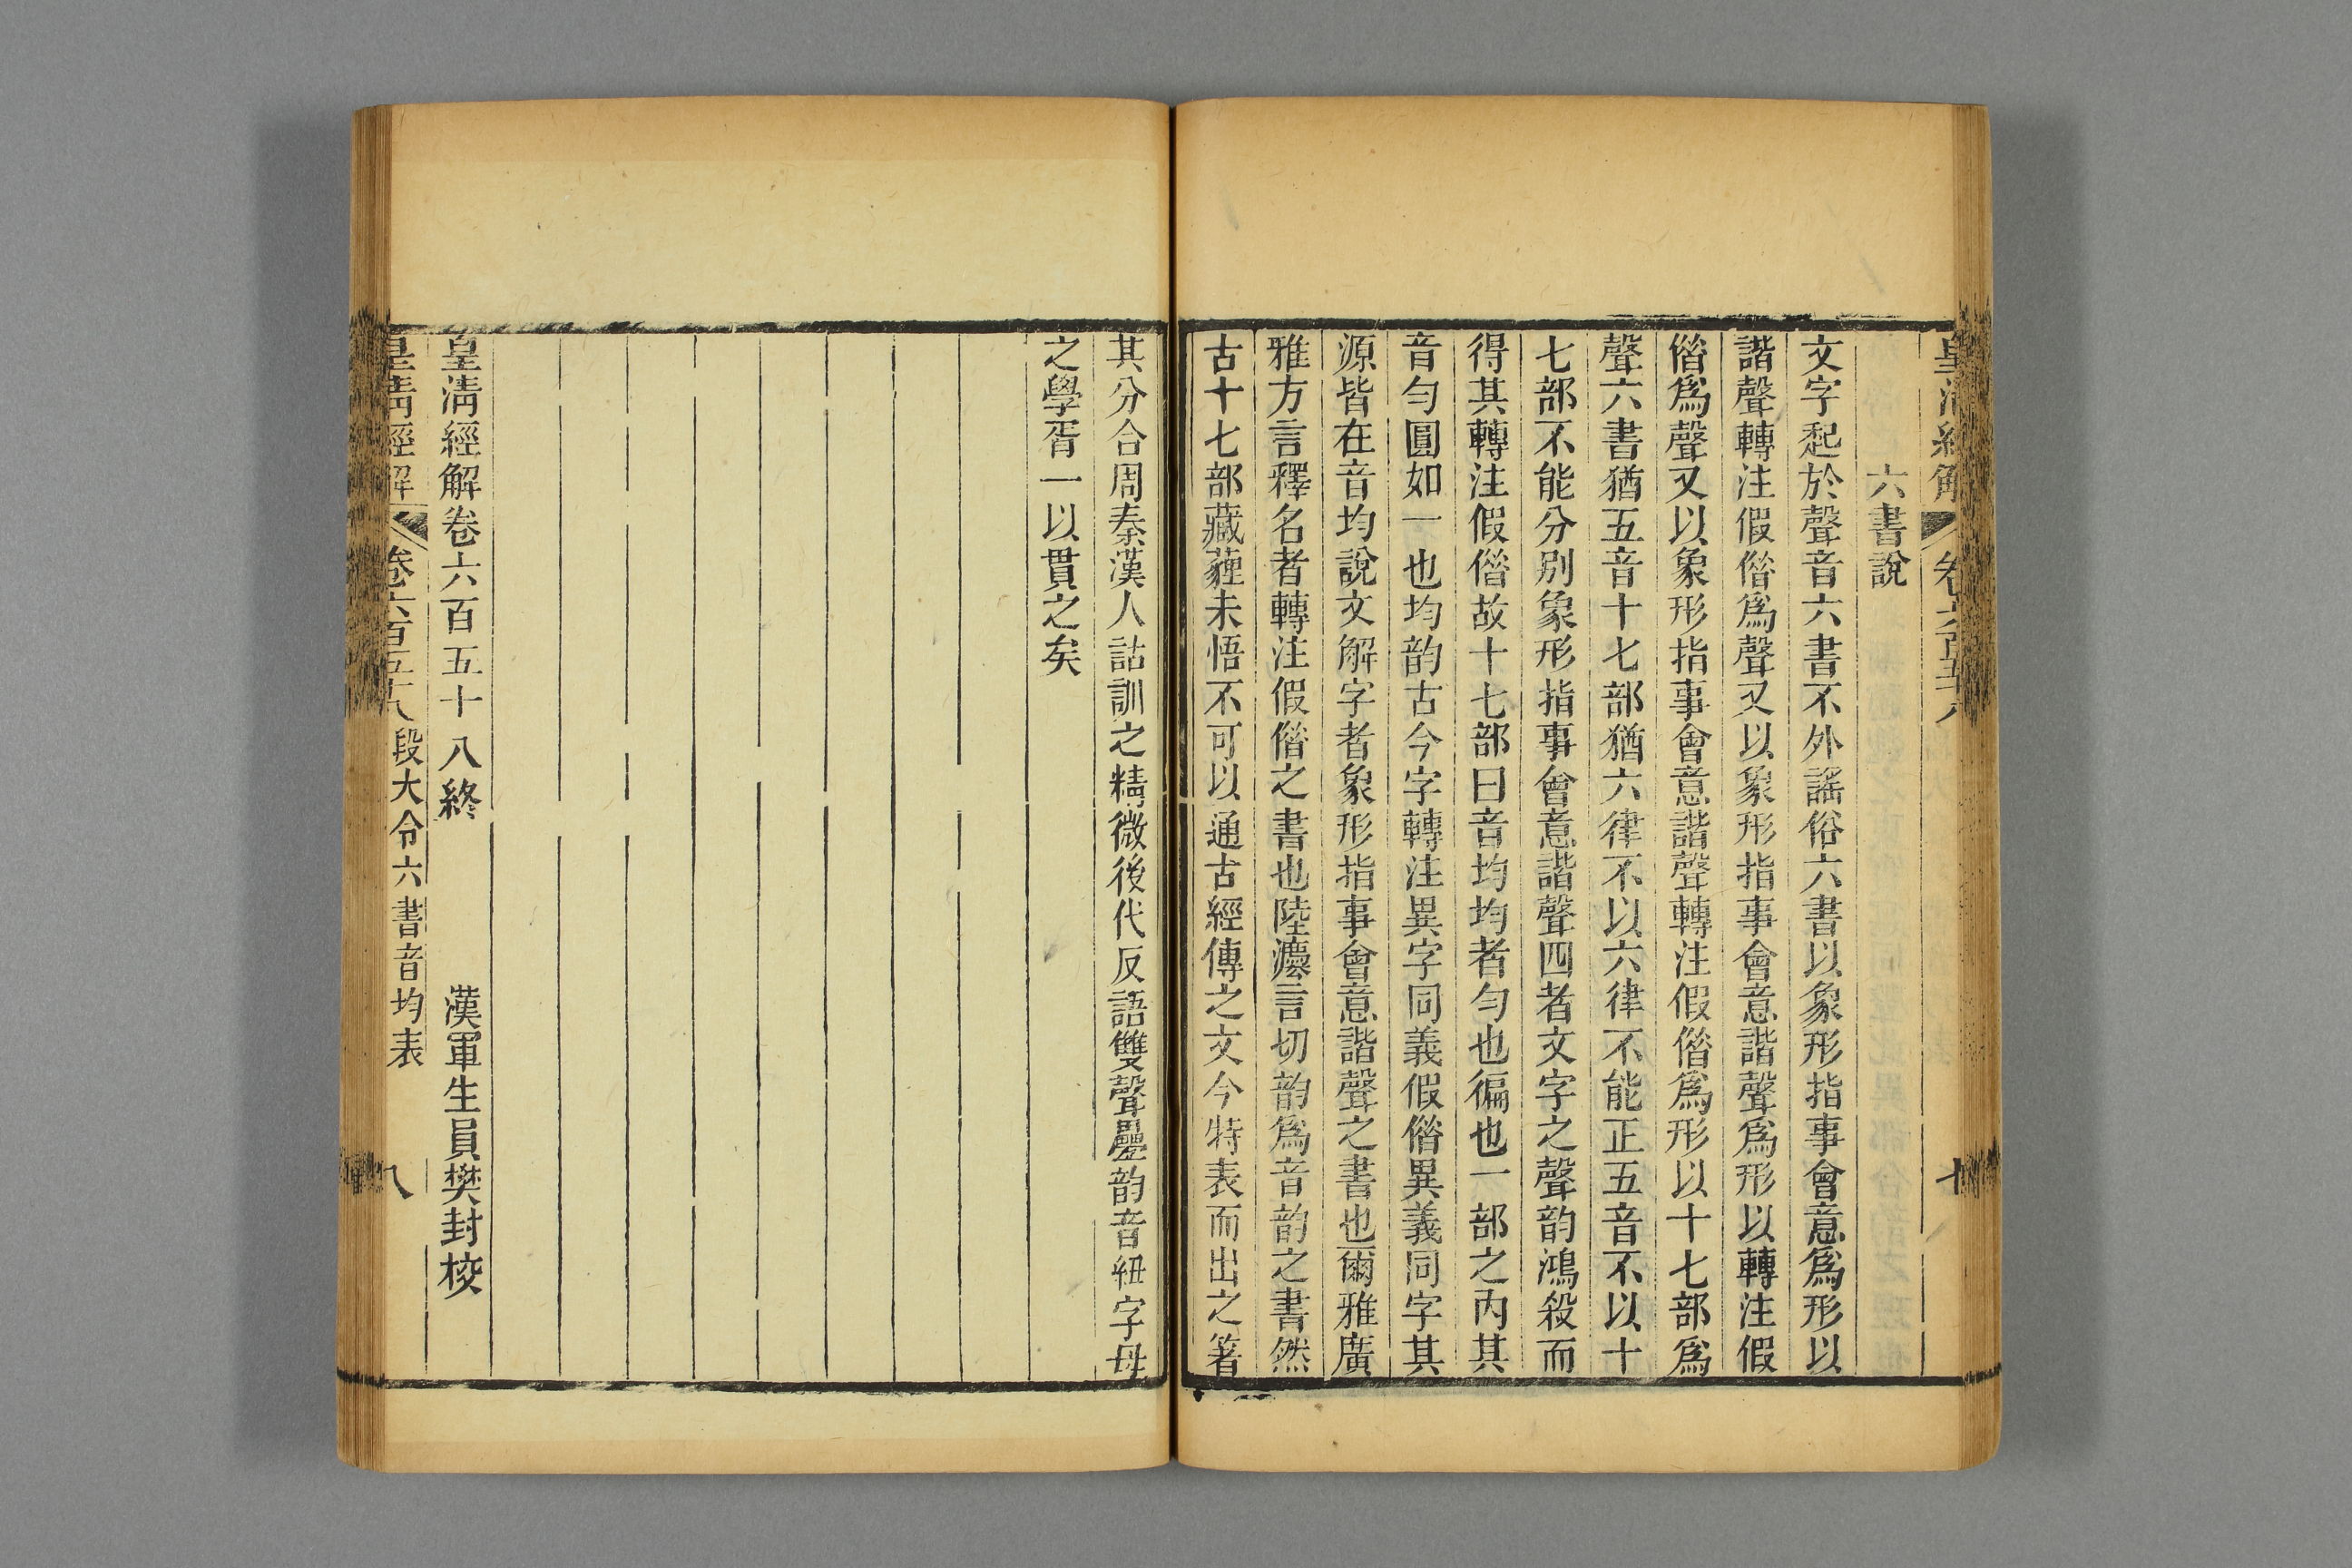 皇清經解 卷六百五十八
六書說
文字起於聲音六書不外謠俗六書以象形指事會意爲形以
諧聲轉注假借爲聲又以象形指事會意諧聲爲形以轉注假
借爲聲又以象形指事會意諧聲轉注假借爲形以十七部爲
聲六書猶五音十七部猶六律不以六律不能正五音不以十
七部不能分别象形指事會意諧聲四者文字之聲韵鴻殺而
得其轉注假借故十七部曰音均均者勻也徧也一部之內其
音勻圓如一也均韵古今字轉注異字同義假借異義同字其
源皆在音均說文解字者象形指事會意諧聲之書也爾雅廣
雅方言釋名者轉注假借之書也陸灋言切韵爲音韵之書然
古十七部藏薶未悟不可以通古經傳之文今特表而出之箸
其分合周秦漢人詁訓之精微後代反語雙聲疊韵音紐字母
之學胥一以貫之矣
皇清經解卷六百五十八終 漢軍生員樊封校
皇清經解 卷六百五十八 段大令六書音均表 八